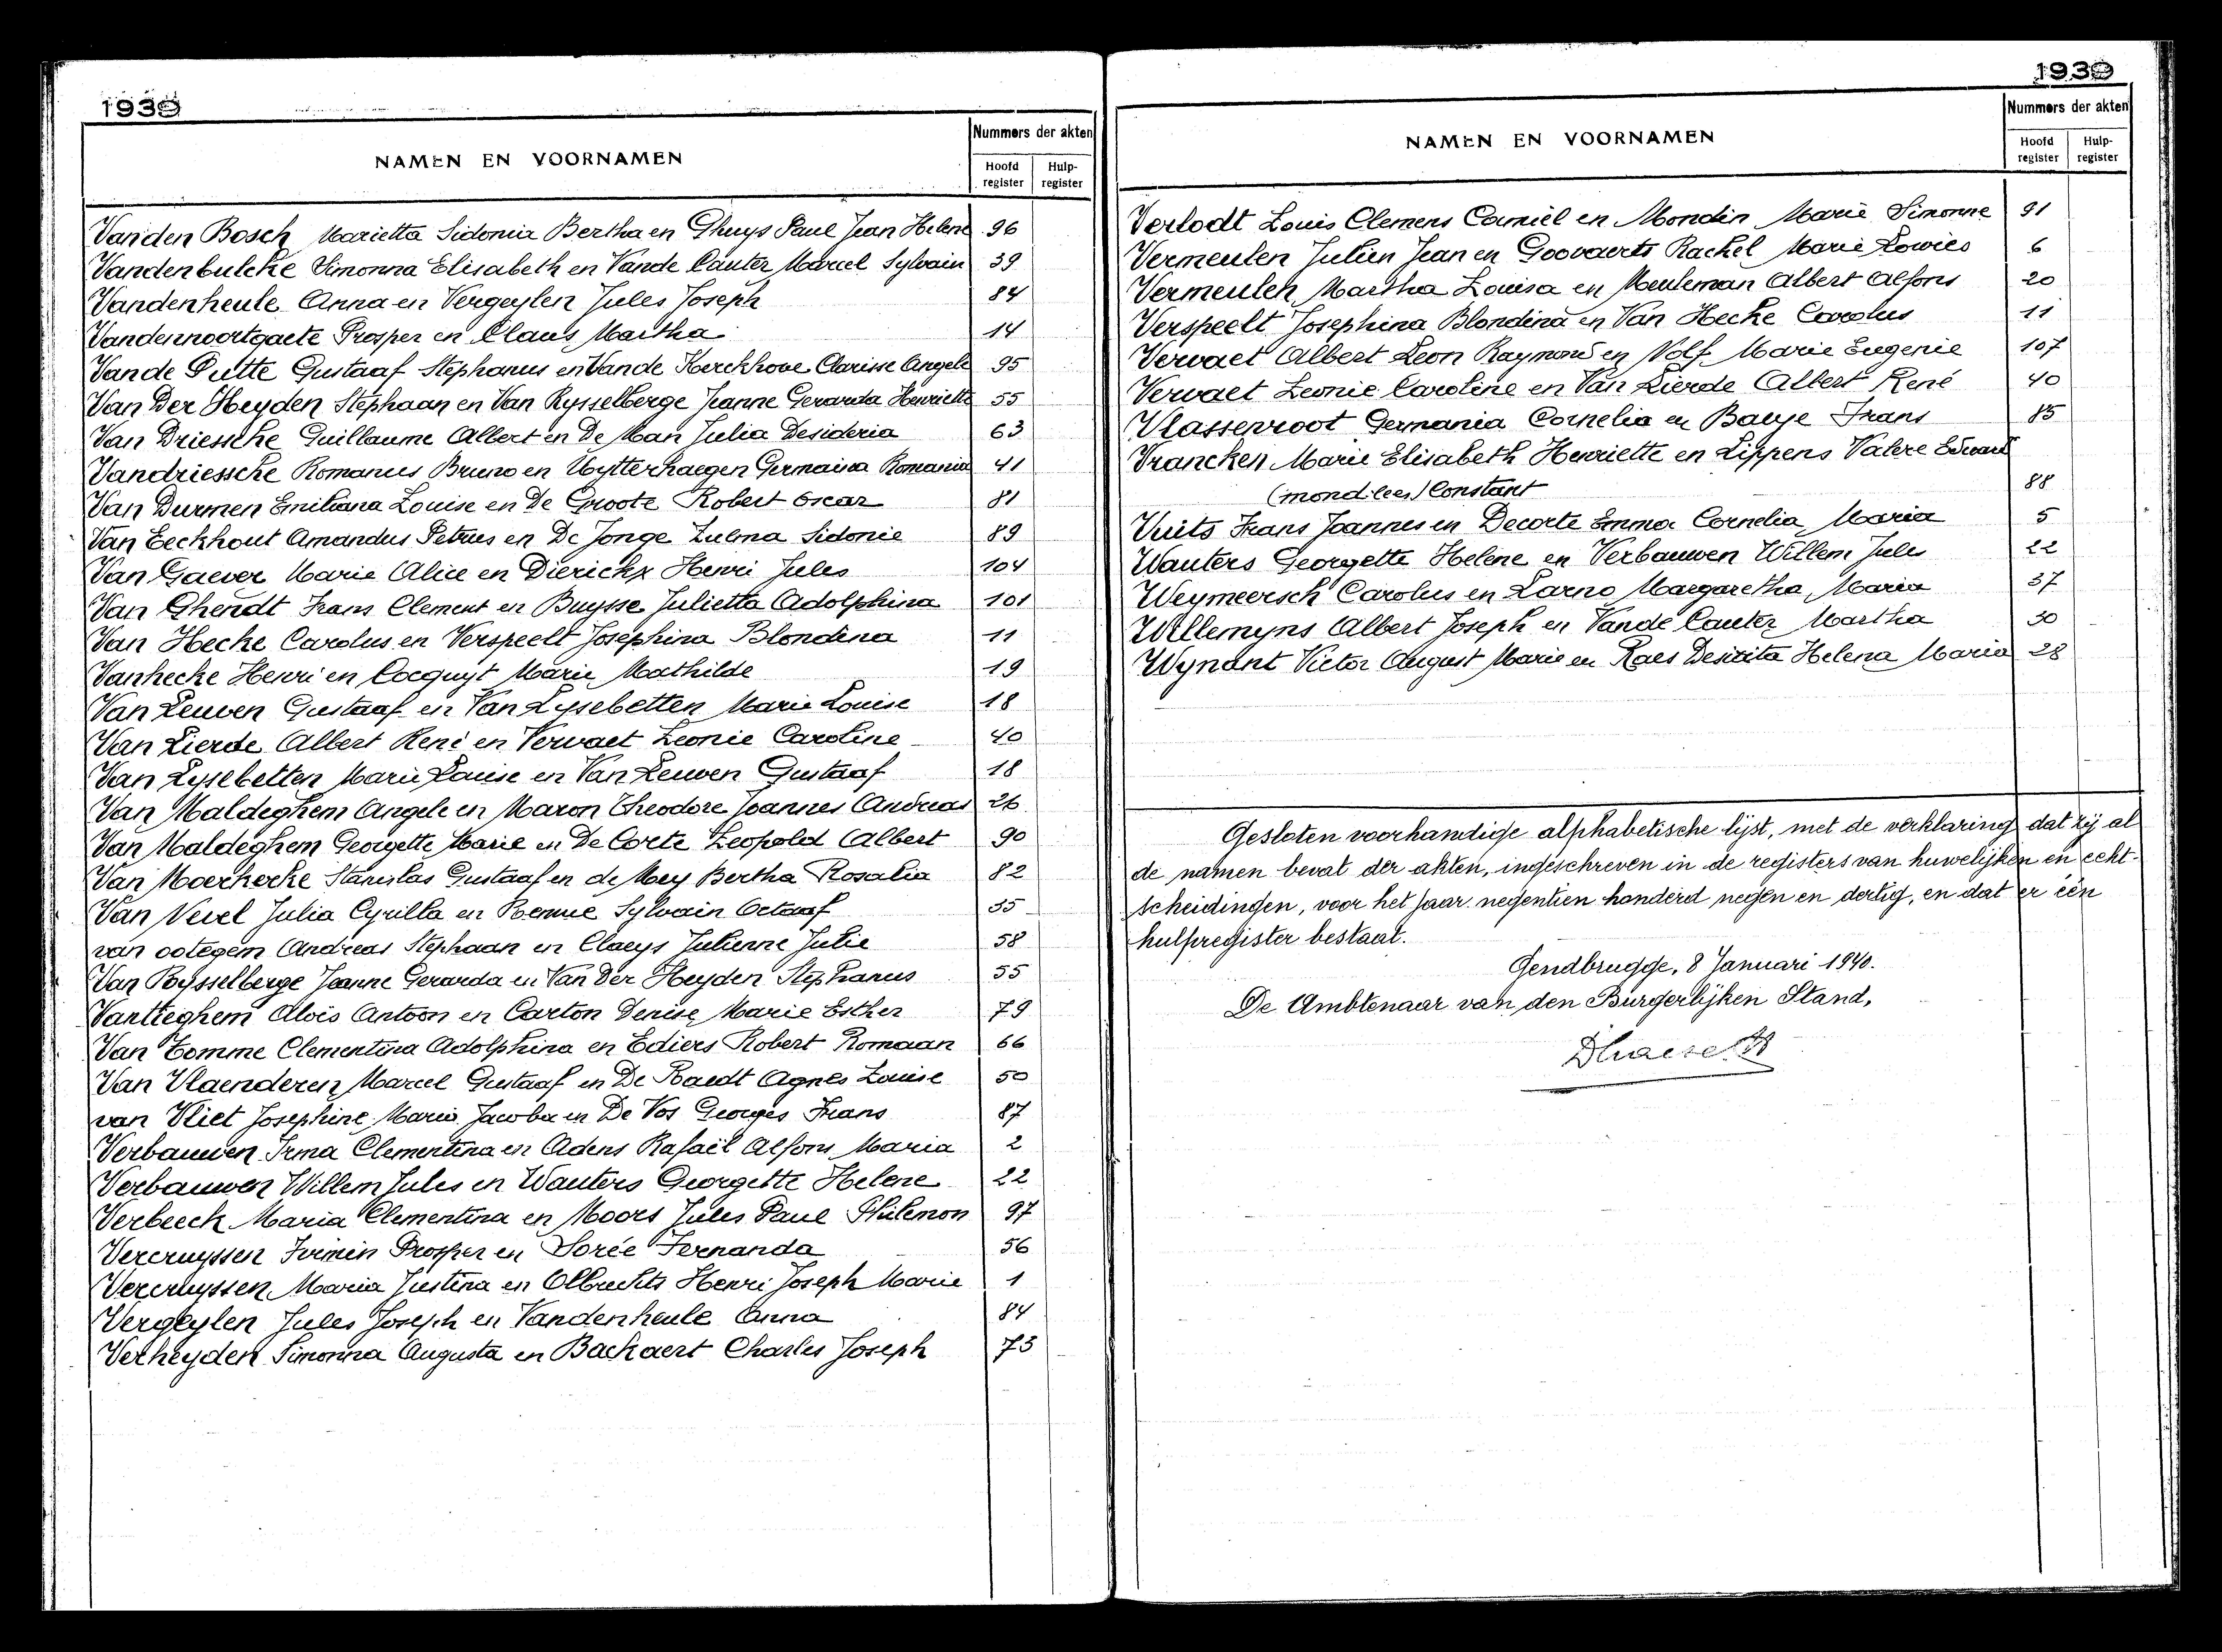 1939
NAMEN EN VOORNAMEN
Nummers der akten
Hoofd register
Hulp- register
Vanden Bosch Marietta Sidonia Bertha en Ghuys Paul Jean Helene 96
Vandenbulcke Simonna Elisabeth en Vande Cauter Marcel Sylvain 39
Vandenheule Anna en Vergeylen Jules Joseph 84
Vandennoortgaete Prosper en Claus Martha 14
Vande Putte Gustaaf Stephanus en Vande Kerckhove Clarisse Angele 95
Van Der Heyden Stephaan en Van Rysselberge Jeanne Gerarda Henriette 55
Van Driessche Guillaume Albert en De Man Julia Desideria 63
Vandriessche Romanus Bruno en Uytterhaegen Germaina Romania 41
Van Durmen Emiliana Louise en De Groote Robert Oscar 81
Van Eeckhout Amandus Petrus en De Jonge Zulma Sidonie 89
Van Gaever Marie Alice en Dierickx Henri Jules 104
Van Ghendt Frans Clement en Buysse Julietta Adolphina 101
Van Hecke Carolus en Verspeelt Josephina Blondina 11
Vanhecke Henri en Cocquyt Marie Mathilde 19
Van Leuven Gustaaf en Van Lysebetten Marie Louise 18
Van Lierde Albert René en Vervaet Leonie Caroline 40
Van Lysebetten Marie Louise en Van Leuven Gustaaf 18
Van Maldeghem Angele en Maron Theodore Joannes Andreas 26
Van Maldeghem Georgette Marie en De Corte Leopold Albert 90
Van Moerkerke Stanislas Gustaaf en de Mey Bertha Rosalia 82
Van Nevel Julia Cyrilla en Sylvain Octaaf 35
van ootegem Andreas Stephaan en Claeys Julienne Julie 58
Van Rysselberge Jeanne Gerarda en Van Der Heyden Stephanus 55
Vantieghem Aloïs Antoon en Carton Denise Marie Esther 79
Van Tomme Clementina Adolphina en Ediers Robert Romaan 66
Van Vlaenderen Marcel Gustaaf en De Raedt Agnes Louise 50
van Vliet Josephine Maria Jacoba en De Vos Georges Frans 87
Verbauwen Irma Clementina en Adens Rafaël Alfons Maria 2
Verbauwen Willem Jules en Wauters Georgette Helene 22
Verbeeck Maria Clementina en Moors Jules Paul Philemon 97
Vercruyssen Firmin Prosper en Sorée Fernanda 56
Vercruyssen Maria Justina en Olbrechts Henri Joseph Marie 1
Vergeylen Jules Joseph en Vandenheule Anna 84
Verheyden Simonna Augusta en Backaert Charles Joseph 73
1939
NAMEN EN VOORNAMEN
Nummers der akten
Hoofd register
Hulp- register
Verlodt Louis Clemens Camiel en Mondin Marie Simonne 91
Vermeulen Julien Jean en Goovaerts Rachel Marie Lowies 6
Vermeulen Martha Louisa en Meuleman Albert Alfons 20
Verspeelt Josephina Blondina en Van Hecke Carolus 11
Vervaet Albert Leon Raymond en Nolf Marie Eugenie 107
Vervaet Leonie Caroline en Van Lierde Albert René 40
Vlassenroot Germania Cornelia en Baeye Frans 85
Vrancken Marie Elisabeth Henriette en Lippens Valere Edward
(mond.lees) Constant 88
Vuits Frans Joannes en Decorte Emma Cornelia Maria 5
Wauters Georgette Helene en Verbauwen Willem Jules 22
Weymeersch Carolus en Larno Margaretha Maria 37
Willemyns Albert Joseph en Vande Cauter Martha 30
Wynant Victor August Marie en Raes Helena Maria 28
Gesloten voorhandige alphabetische lijst, met de verklaring dat zij al
de namen bevat der akten, ingeschreven in de registers van huwelijken en echt-
scheidingen, voor het jaar negentien honderd negen en dertig, en dat er één
hulpregister bestaat.
Gendbrugge, 8 Januari 1940.
De Ambtenaar van den Burgerlijken Stand,